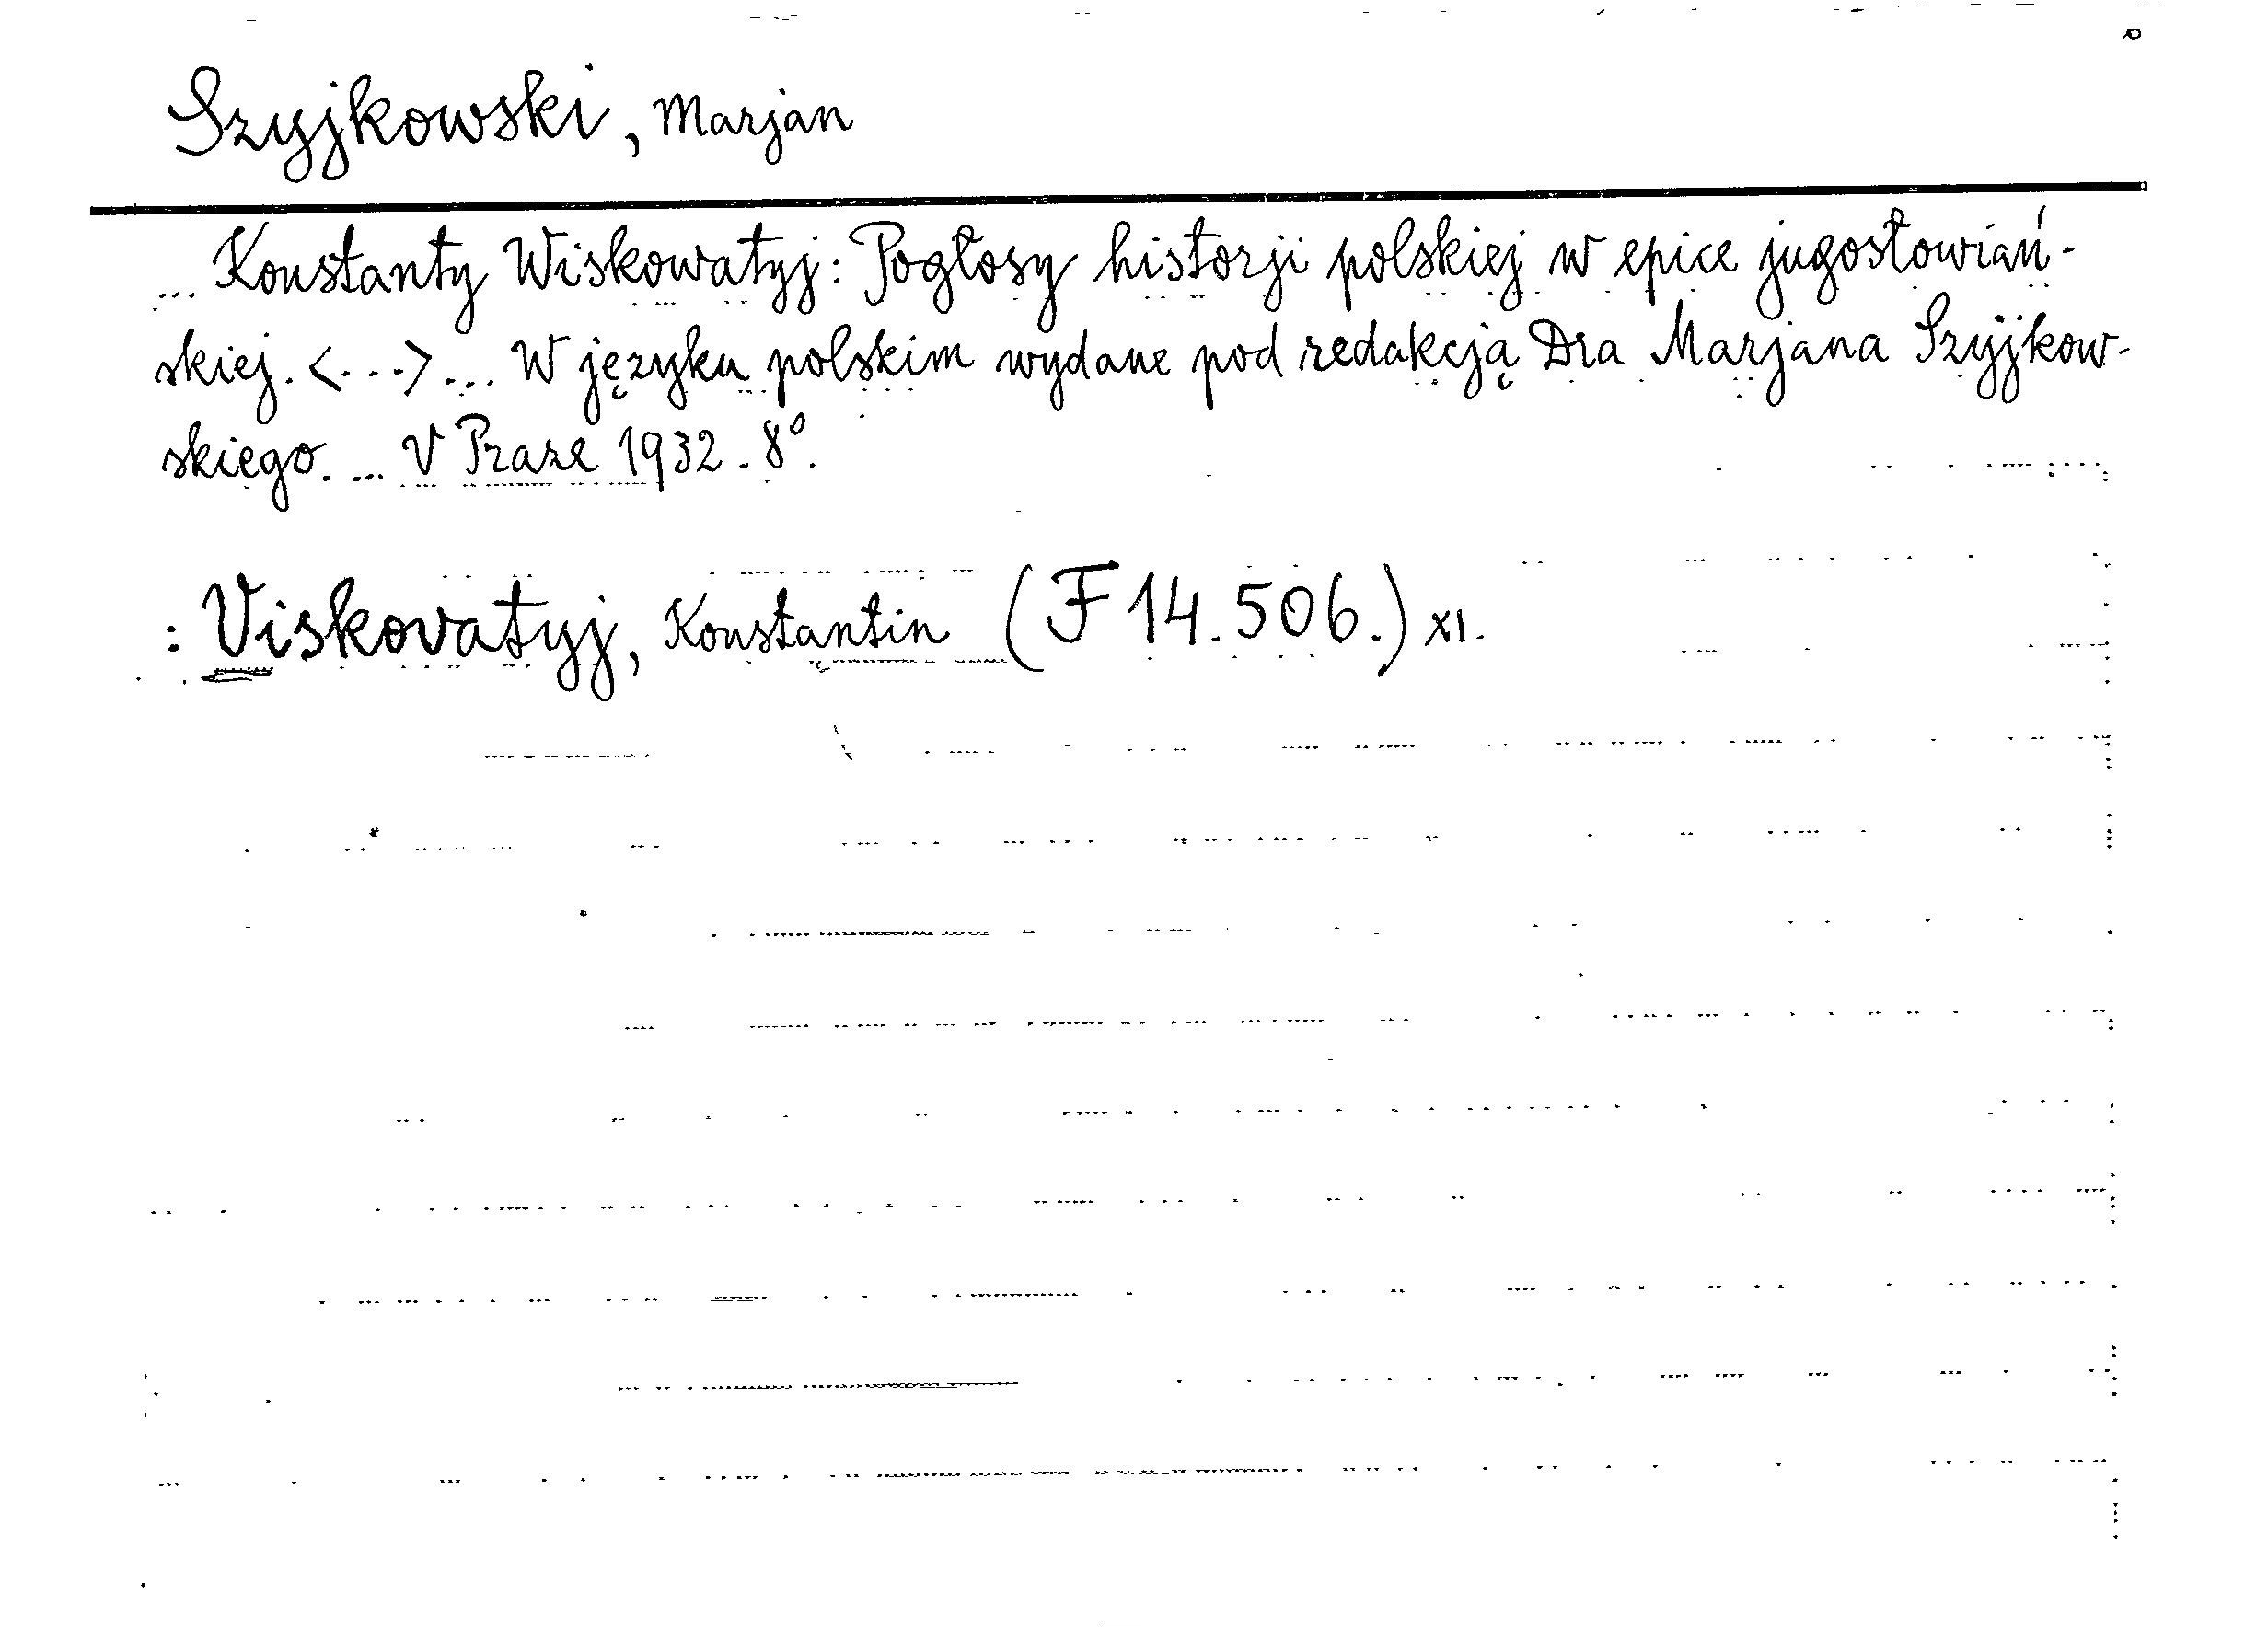 Szyjkowski, Marjan
... Konstanty Wiskowatyj: Pogłosy historji polskiej w epice jugosłowiań-
skiej. <...> ... W języku polskim wydane pod redakcją Dra Marjana Szyjkow-
skiego. ... V Praze 1932. 8°.
: Viskovatyj, Konstantin (F 14.506.) XI.